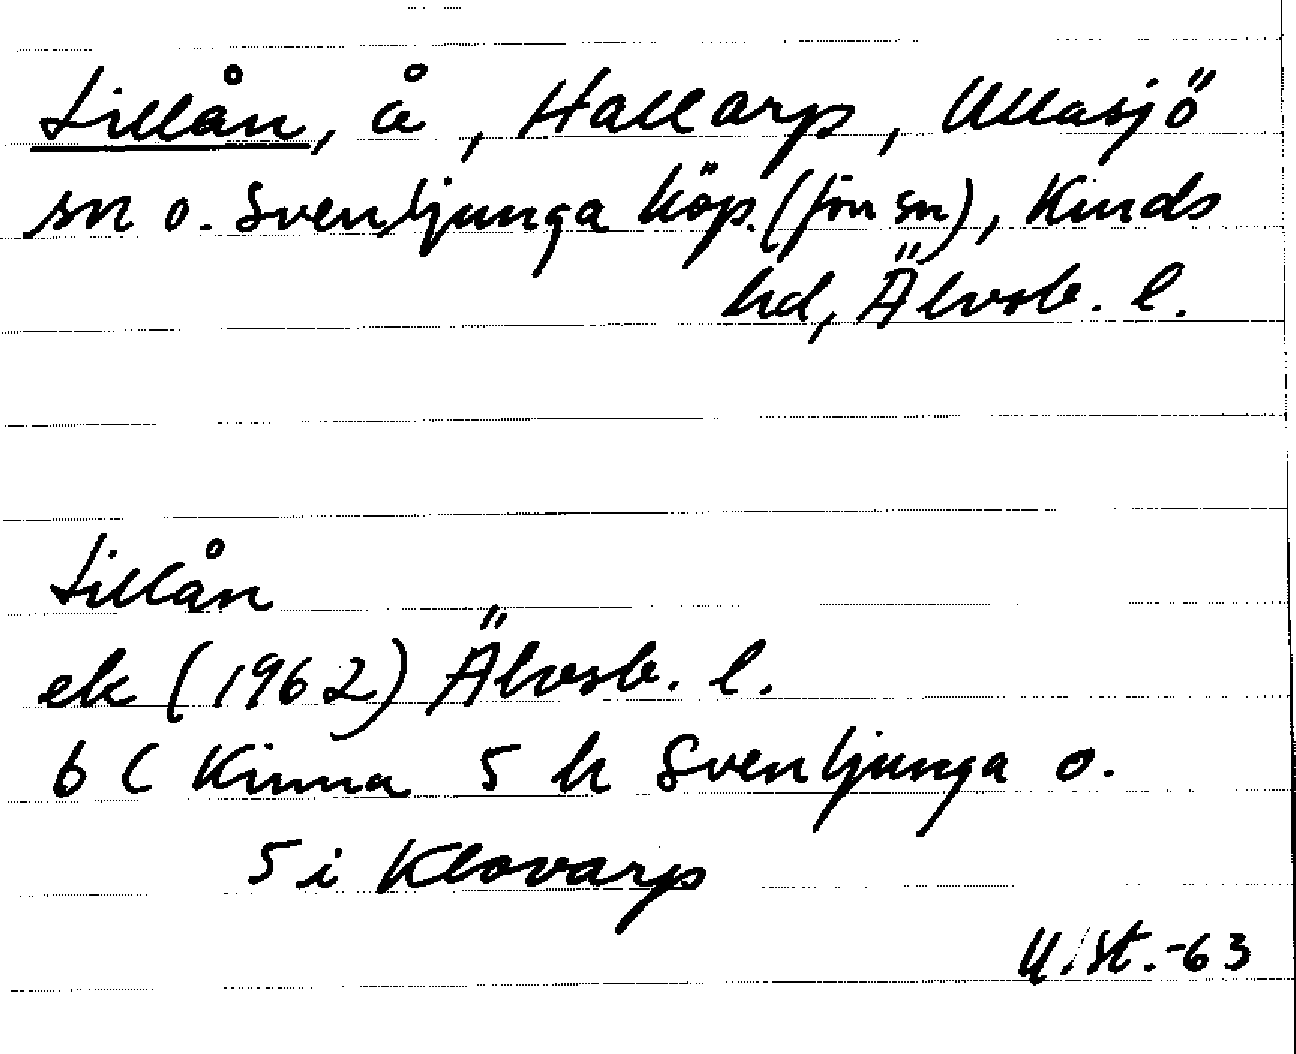 Lillån, å, Hallarp, Ullasjö
sn o. Svenljunga köp. (förr sn), Kinds
hd, Älvsb. l.
Lillån
ek (1962) Älvsb. l.
6 C Kinna 5 h Svenljunga o.
5 i Klovarp
-63